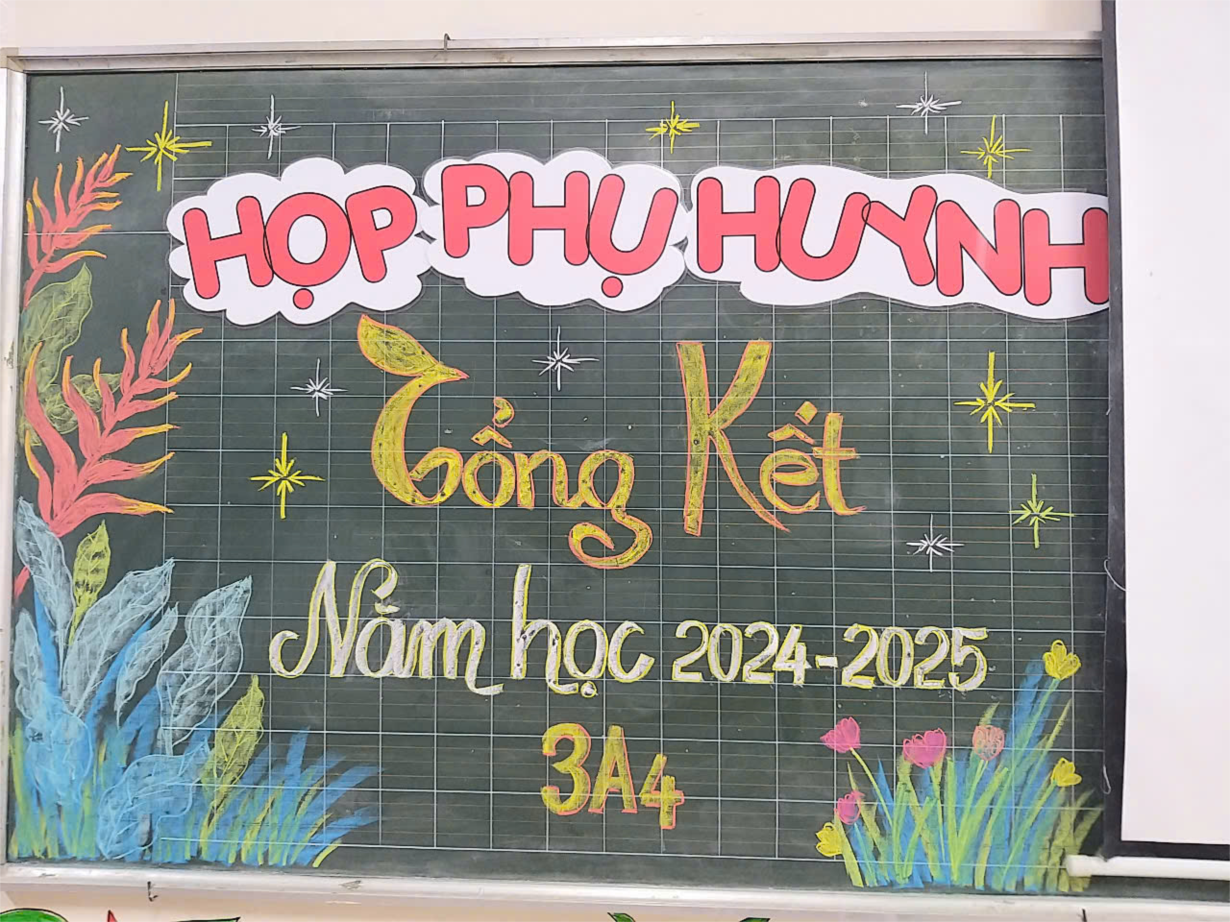 HỌP PHỤ HUYNH
Tổng Kết
Năm học 2024-2025
3A4